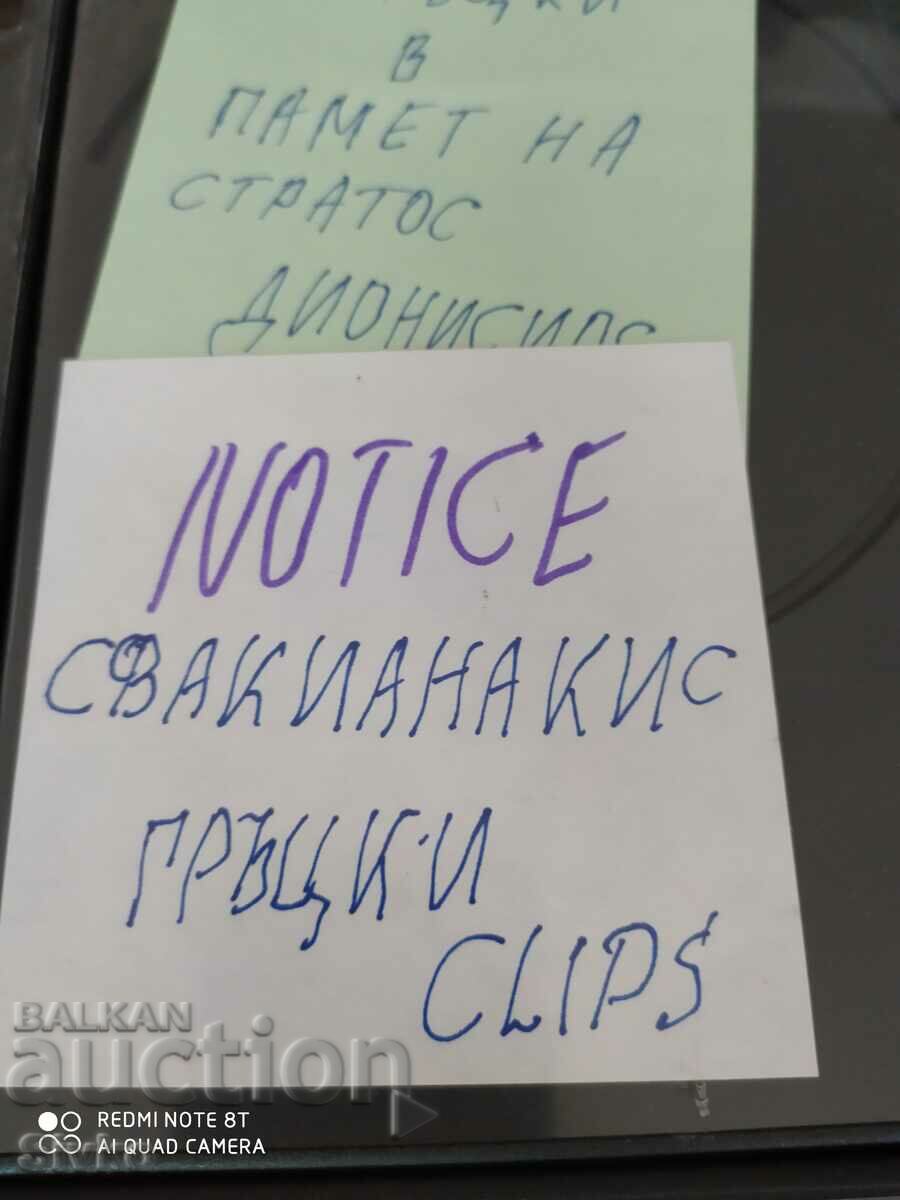 В
ПАМЕТ НА
СТРАТОС
ДИОНИСИОС
NOTICE
СВАКИАНАКИС
ГРЪЦКИ
CLIPS
BALKAN
auction
REDMI NOTE 8T
AI QUAD CAMERA